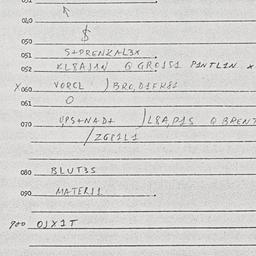 040
$
050
051 S+DRENZAL3X
052 KL8A1AN Q GRO1S1 PANTL1N X
X 060 VORCL ) BRO, D1FK81
061 O
070 UPS+NAD+ )L8A,P1S Q BREN3
/ZGP1L1
080 BLUT3S
090 MATER11
900 OJX1T